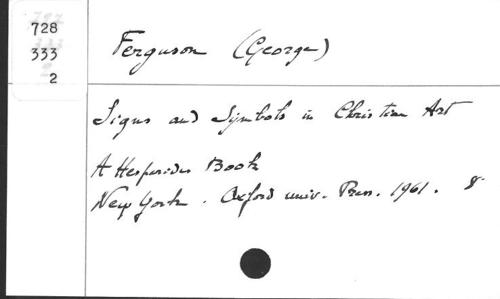 728
333
2
Ferguson (George)
Signs and Symbols in Christian Art
A Hesperides Book
New York. Oxford univ. Press. 1961. 8°